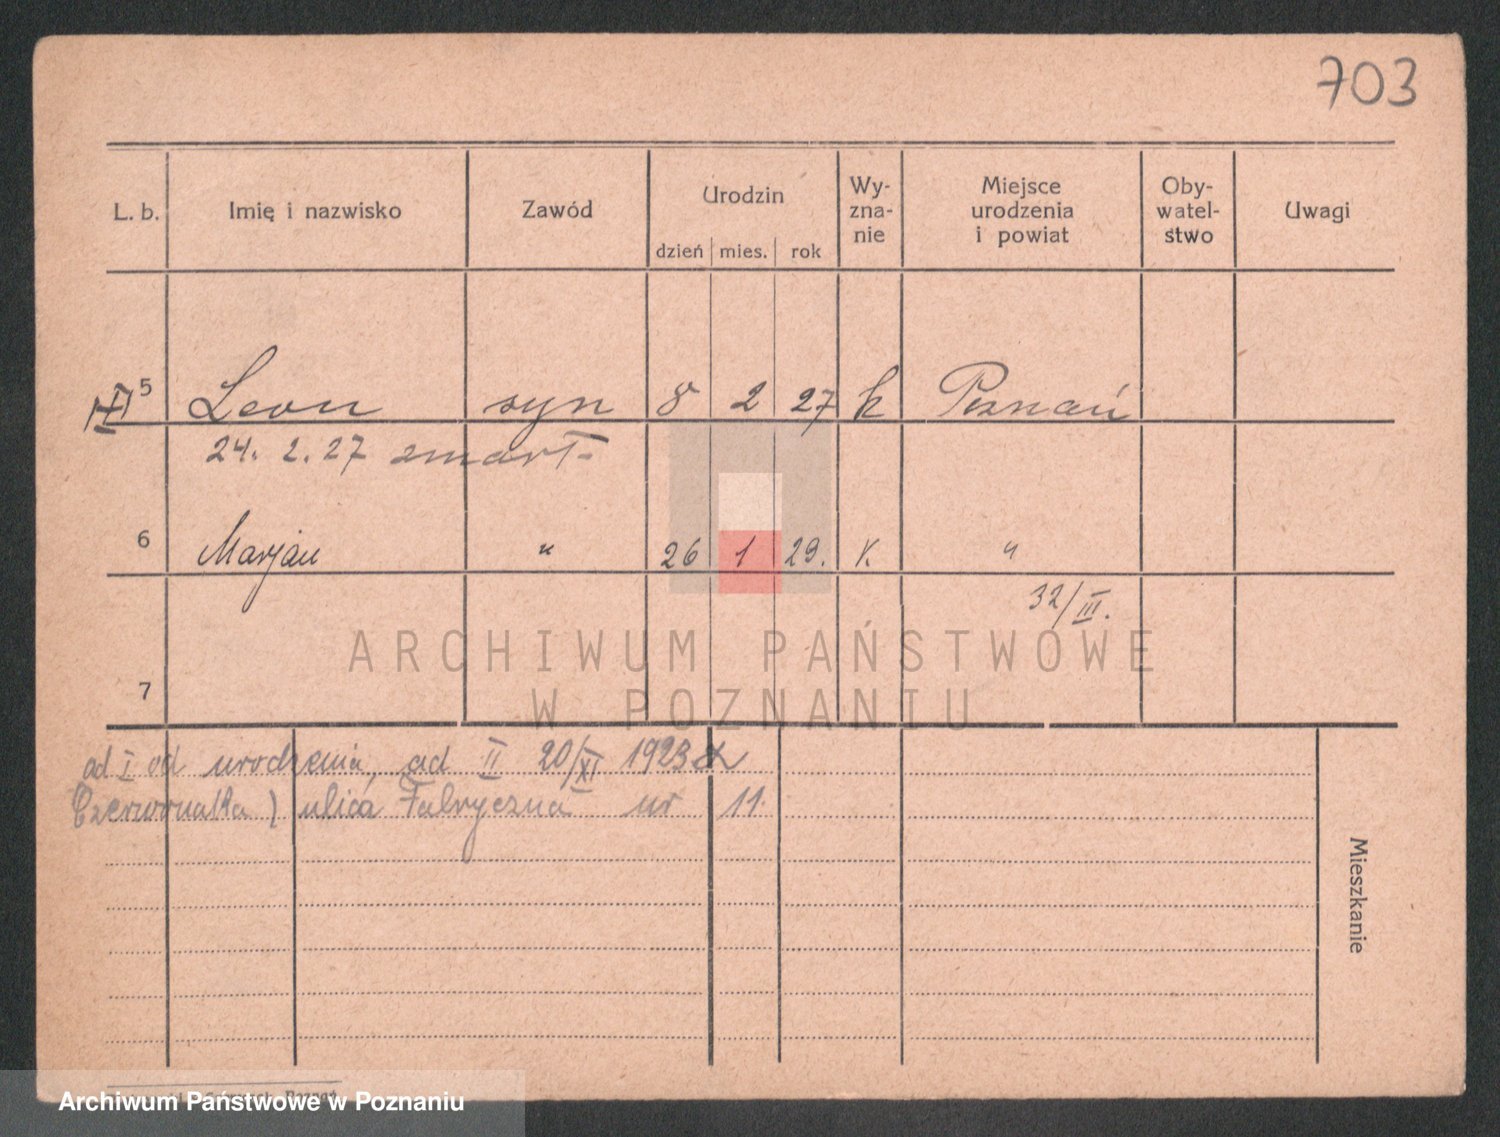 703
L. b. Imię i nazwisko Zawód Urodzin Wy-zna-nie Miejsce urodzenia i powiat Oby-watel-stwo Uwagi
dzień mies. rok
5 Leon syn 8 2 27 k Poznań
24. 2. 27 zmarł
6 Marjan " 26 1 29. K. "
32/III.
7
ARCHIWUM PAŃSTWOWE
W POZNANIU
ad I od urodzenia, ad II 20/XI 1923 z
Czerwonaka) ulica Fabryczna nr 11.
Mieszkanie
Archiwum Państwowe w Poznaniu